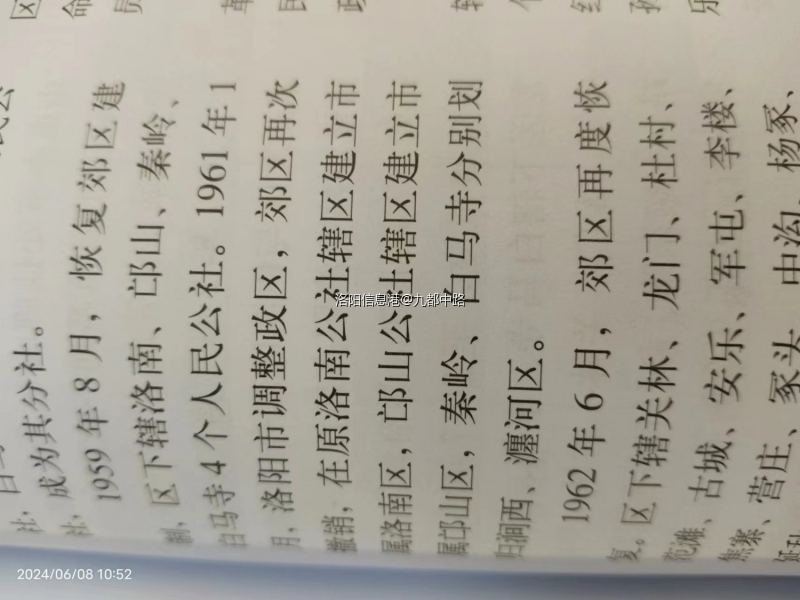 成为其分社。
1959年8月，恢复郊区建
制，区下辖洛南、邙山、秦岭、
白马寺4个人民公社。1961年1
月，洛阳市调整政区，郊区再次
撤销，在原洛南公社辖区建立市
属洛南区，邙山公社辖区建立市
属邙山区，秦岭、白马寺分别划
归涧西、瀍河区。
1962年6月，郊区再度恢
复。区下辖关林、龙门、杜村、
范滩、古城、安乐、军屯、李楼、
焦寨、营庄、冢头、中沟、杨冢、
洛阳信息港@九都中路
2024/06/08 10:52